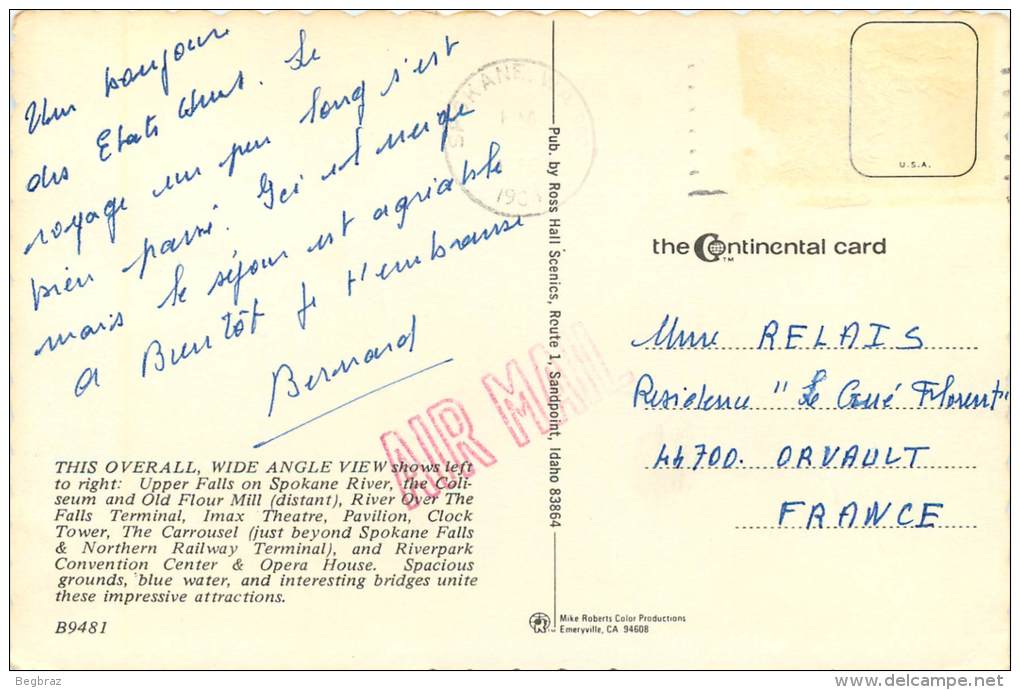 Un bonjour
des Etats Unis. Le
voyage un peu long s'est
bien passé. Ici il neige
mais le séjour est agréable
A Bientôt je t'embrasse
Bernard
THIS OVERALL, WIDE ANGLE VIEW shows left
to right: Upper Falls on Spokane River, the Coli-
seum and Old Flour Mill (distant), River Over The
Falls Terminal, Imax Theatre, Pavilion, Clock
Tower, The Carrousel (just beyond Spokane Falls
& Northern Railway Terminal), and Riverpark
Convention Center & Opera House. Spacious
grounds, blue water, and interesting bridges unite
these impressive attractions.
B9481
SPOKANE, WA
AIR MAIL
Pub. by Ross Hall Scenics, Route 1, Sandpoint, Idaho 83864
Mike Roberts Color Productions
Emeryville, CA 94608
U.S.A.
the Continental card
TM
Mme RELAIS
Residence "Le Florent"
44700. ORVAULT
FRANCE
Begbraz
delcampe.net